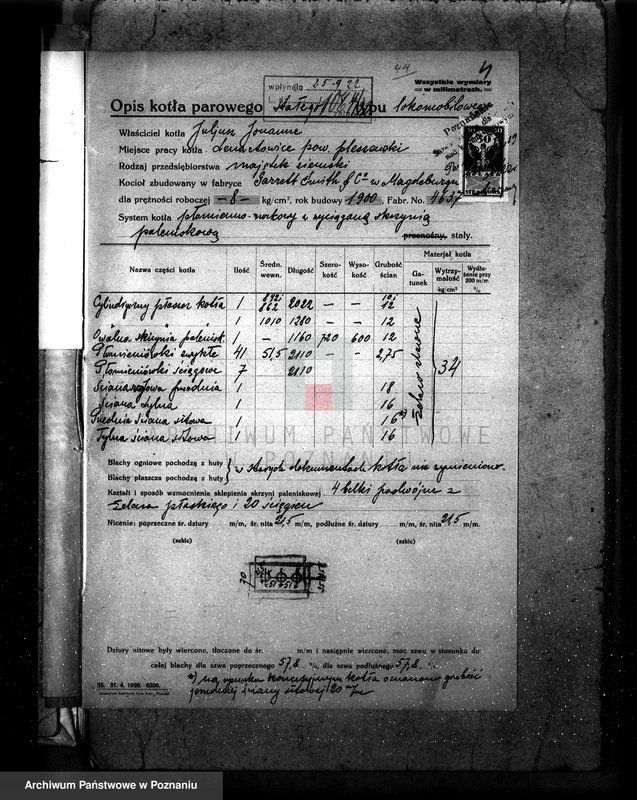 44
4
wpłynęło 25-9 22
Wszystkie wymiary
w milimetrach.
Opis kotła parowego stałego typu lokomobilowego
Właściciel kotła Juljusz Jouanne
Miejsce pracy kotła Lenartowice pow. pleszewski
Rodzaj przedsiębiorstwa majątek ziemski
Kocioł zbudowany w fabryce Garrett Smith & Co w Magdeburgu
dla prężności roboczej — 8 — kg/cm², rok budowy 1900. Fabr. No. 4637
System kotła płomienno-rurkowy z wyciąganą skrzynią
paleniskową przenośny, stały.
Nazwa części kotła Ilość Średn. wewn. Długość Szerokość Wysokość Grubość ścian Materjał kotła
Gatunek Wytrzymałość kg/cm² Wydłużenie przy 200 m/m %
Cylindryczny płaszcz kotła 1 862 2022 — — 12
1 1010 1280 — — 12
Owalna skrzynia palenisk. 1 — 1160 720 600 12
Płomieniówki zwykłe 41 51,5 2110 — — 2,75
Płomieniówki ściągowe 7 2110
Ściana przednia 1 18
Ściana tylna 1 16
Przednia ściana sitowa 1 16 *)
Tylna ściana sitowa 1 16
Żelazo zlewne 34
Blachy ogniowe pochodzą z huty
Blachy płaszcza pochodzą z huty
w starych dokumentach kotła nie wymieniono.
Kształt i sposób wzmocnienia sklepienia skrzyni paleniskowej 4 belki podwójne z
żelaza płaskiego i 20 ściągów
Nicenie: poprzeczne śr. dziury m/m, śr. nita 21,5 m/m, podłużne śr. dziury m/m, śr. nita 21,5 m/m.
(szkic) (szkic)
70
Dziury nitowe były wiercone, tłoczone do śr. m/m i następnie wiercone, moc szwu w stosunku do
całej blachy dla szwu poprzecznego 57,8 %, dla szwu podłużnego 57,8 %
*) Na rysunku koncesyjnym kotła oznaczono grubość
przedniej ściany sitowej 20 m/m
25. 21. 4. 1920. 6500.
ARCHIWUM PAŃSTWOWE
W POZNANIU
Archiwum Państwowe w Poznaniu